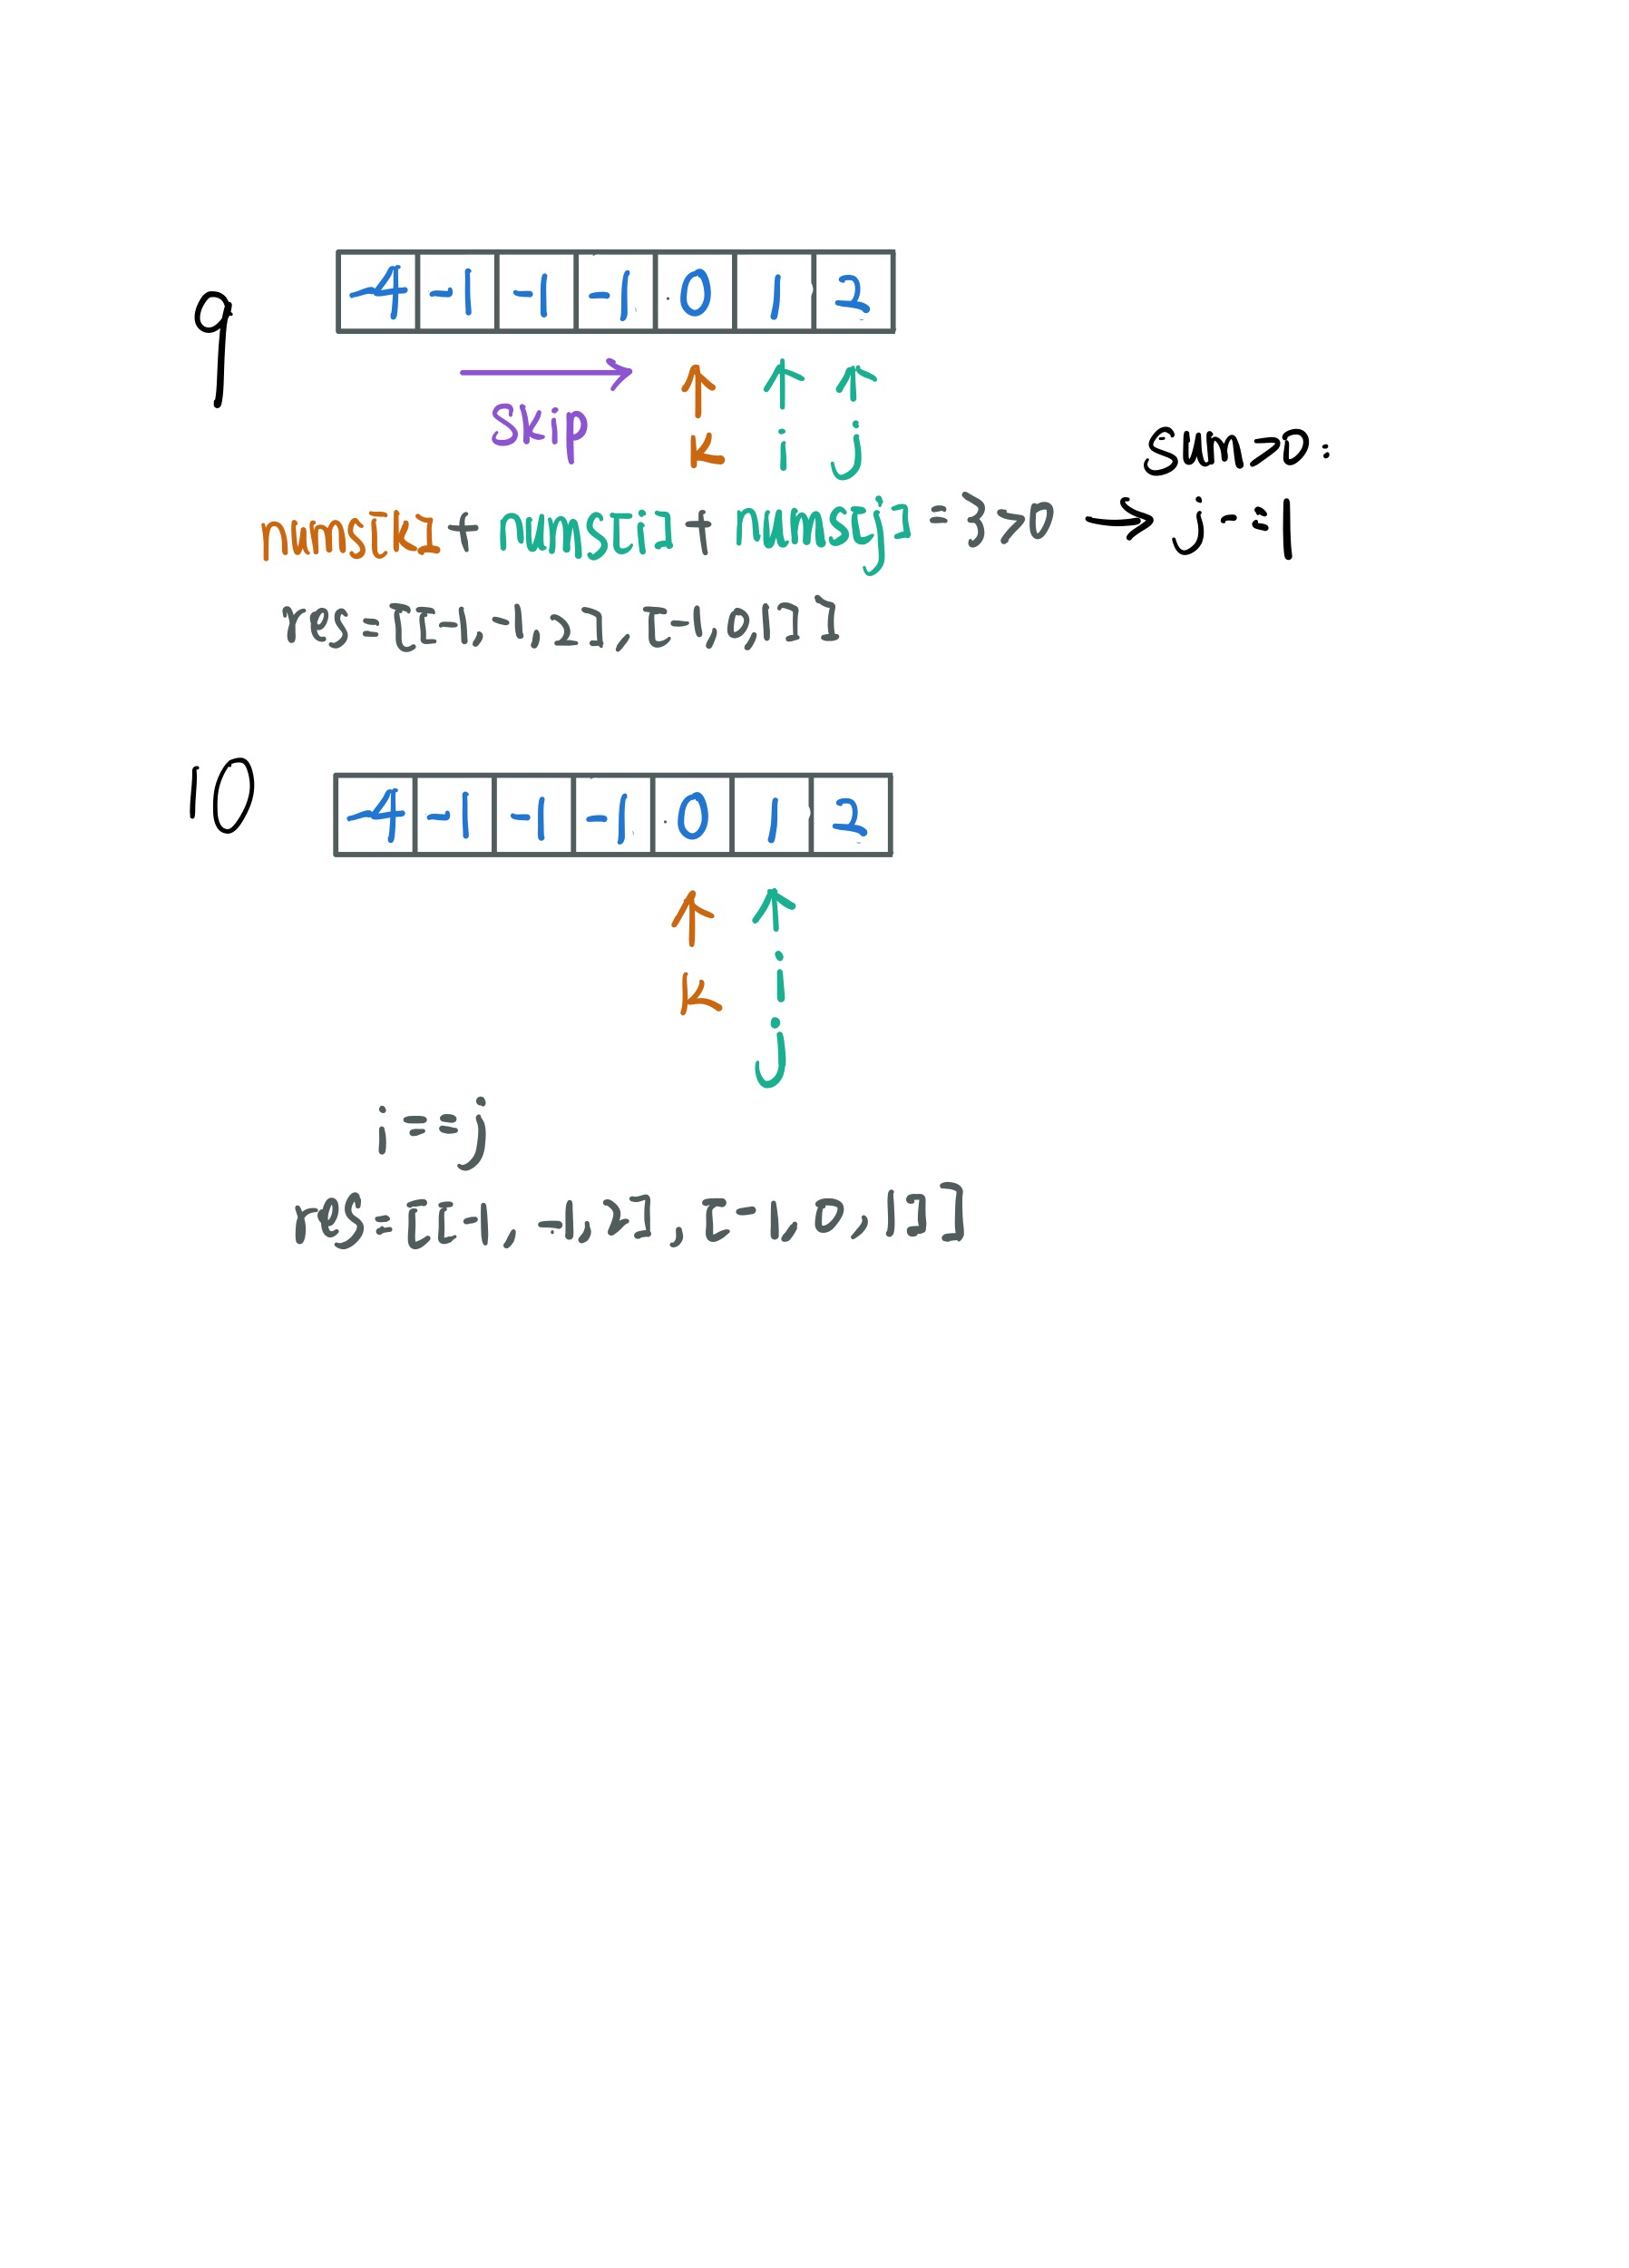 9
-4 -1 -1 -1 0 1 2
skip
k i j
sum>0:
nums[k] + nums[i] + nums[j] = 3 >0 → j -=1
res=[[-1,-1,2],[-1,0,1]]
10
-4 -1 -1 -1 0 1 2
k i
j
i==j
res=[[-1,-1,2],[-1,0,1]]